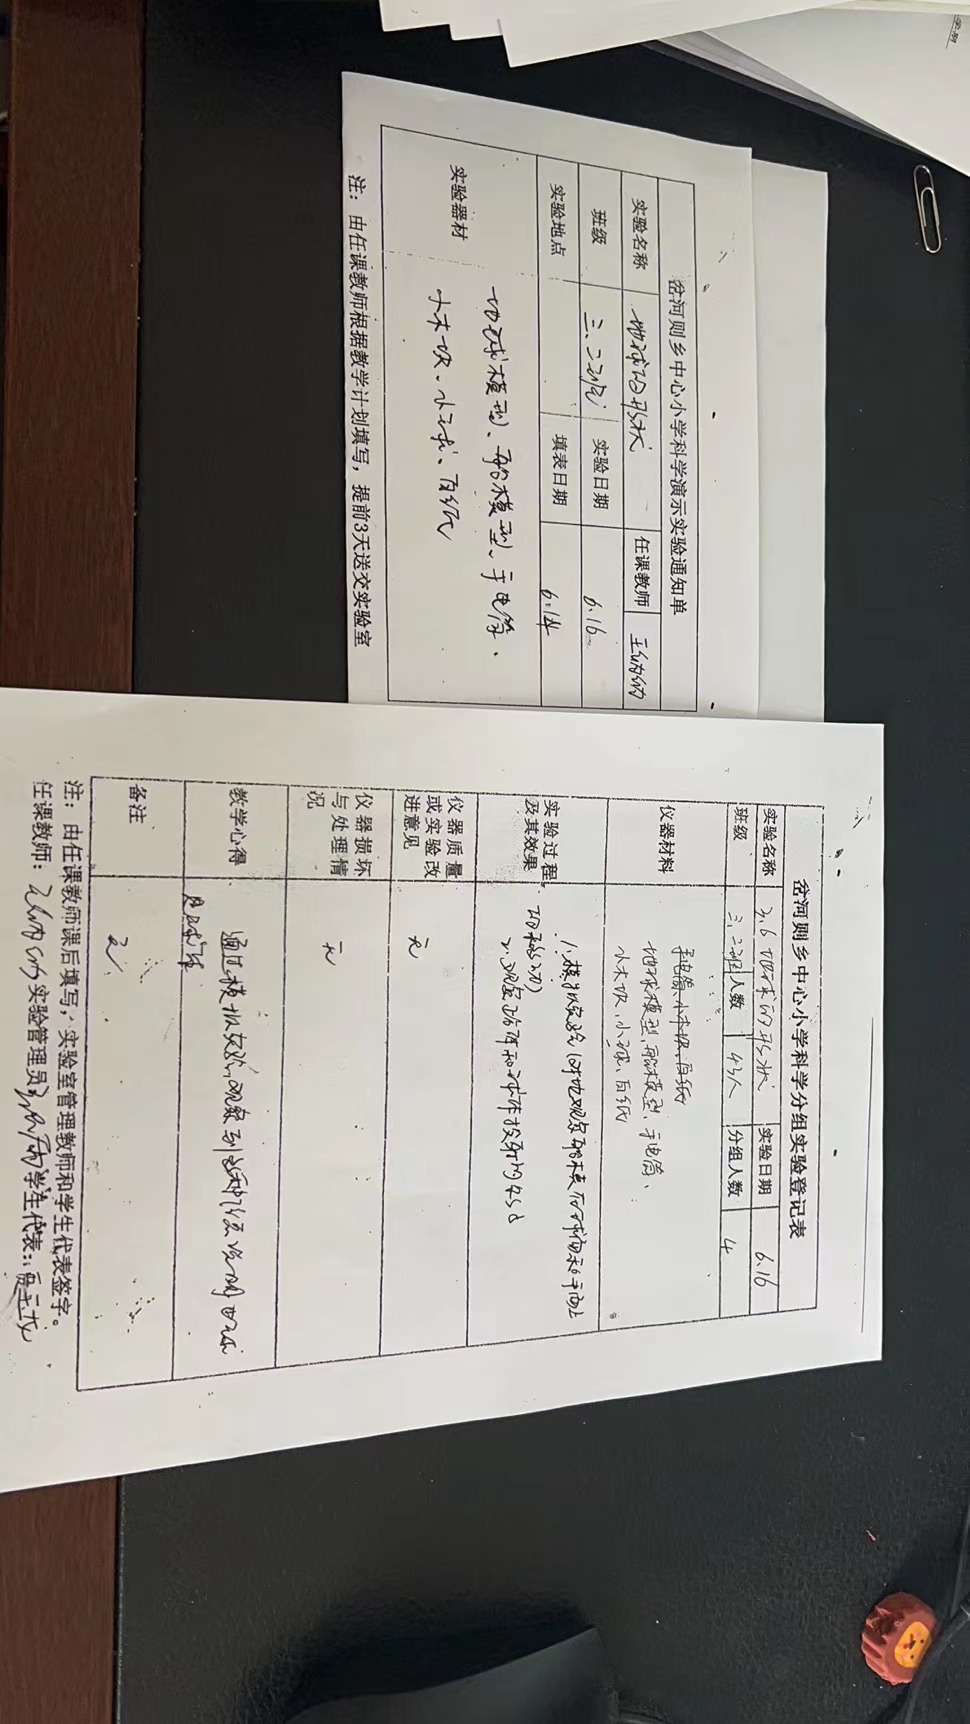 岔河则乡中心小学科学演示实验通知单
实验名称 地球的形状 任课教师 王纳纳
班级 三.二班 实验日期 6.16
实验地点 填表日期 6.14
实验器材 地球模型、船模型、手电筒、
小木块、小球、白纸
注：由任课教师根据教学计划填写，提前3天送交实验室
岔河则乡中心小学科学分组实验登记表
实验名称 3.6地球的形状 实验日期 6.16
班级 三.二班 人数 43人 分组人数 4
仪器材料 手电筒、小木块、白纸
地球模型、船模型、手电筒、
小木块、小球、白纸
实验过程及其效果 1.模拟实验(对比观察船模在球面和平面上
的移动)
2.观察
仪器质量或实验改进意见 无
仪器损坏与处理情况 无
教学心得 通过模拟实验,观察到 说明地球
是球体
备注 无
注：由任课教师课后填写，实验室管理教师和学生代表签字。
任课教师：王纳纳 实验管理员： 学生代表：